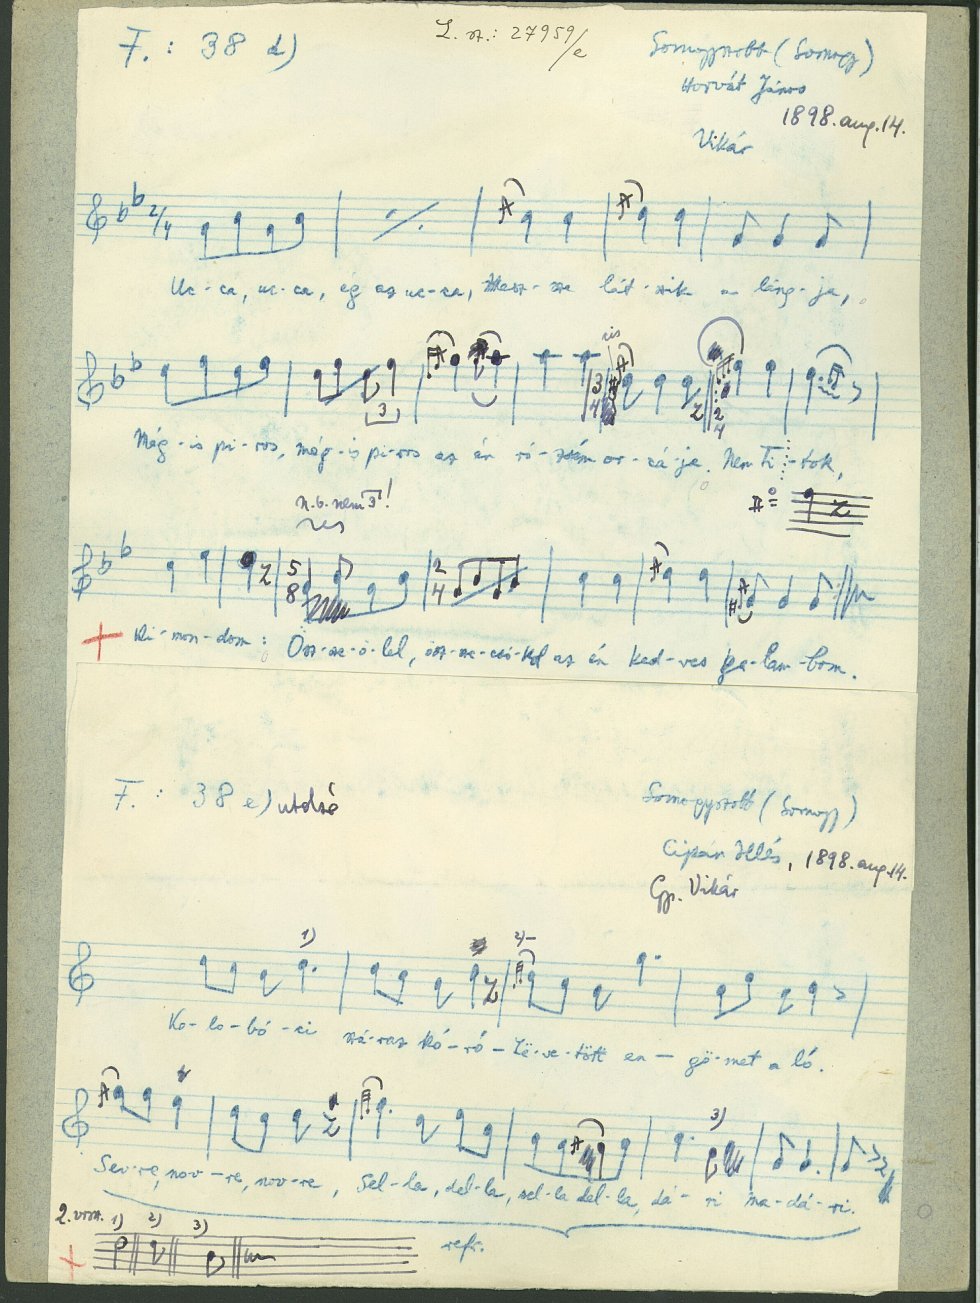 F. : 38 d)
L. sz.: 27959/e
Somogyszobb (Somogy)
Horvát János
1898. aug. 14.
Vikár
2/4
Uc-ca, uc-ca, ég az uc-ca, Messz-sze lát-szik a láng-ja,
3
3 4
cis
2 4
Még-is pi-ros, még-is pi-ros az én ró-zsám or-cá-ja. Nem Ti-tok,
n.b. nem 3!
5 8
2 4
Ki-mon-dom: Ösz-sze-ö-lel, ösz-sze-csó-kol az én ked-ves ga-lam-bom.
F. : 38 e) utolsó
Somogyszobb (Somogy)
Cipán Illés, 1898. aug. 14.
Gy. Vikár
1) 2)
Ko-lo-bó-ci szá-raz kó-ró-Lë-ve-tött en-gö-met a ló.
3)
Sev-re, nov-re, nov-re, Sel-la, del-la, sel-la del-la, dá-ri ma-dá-ri.
2. vsz. 1) 2) 3)
refr.